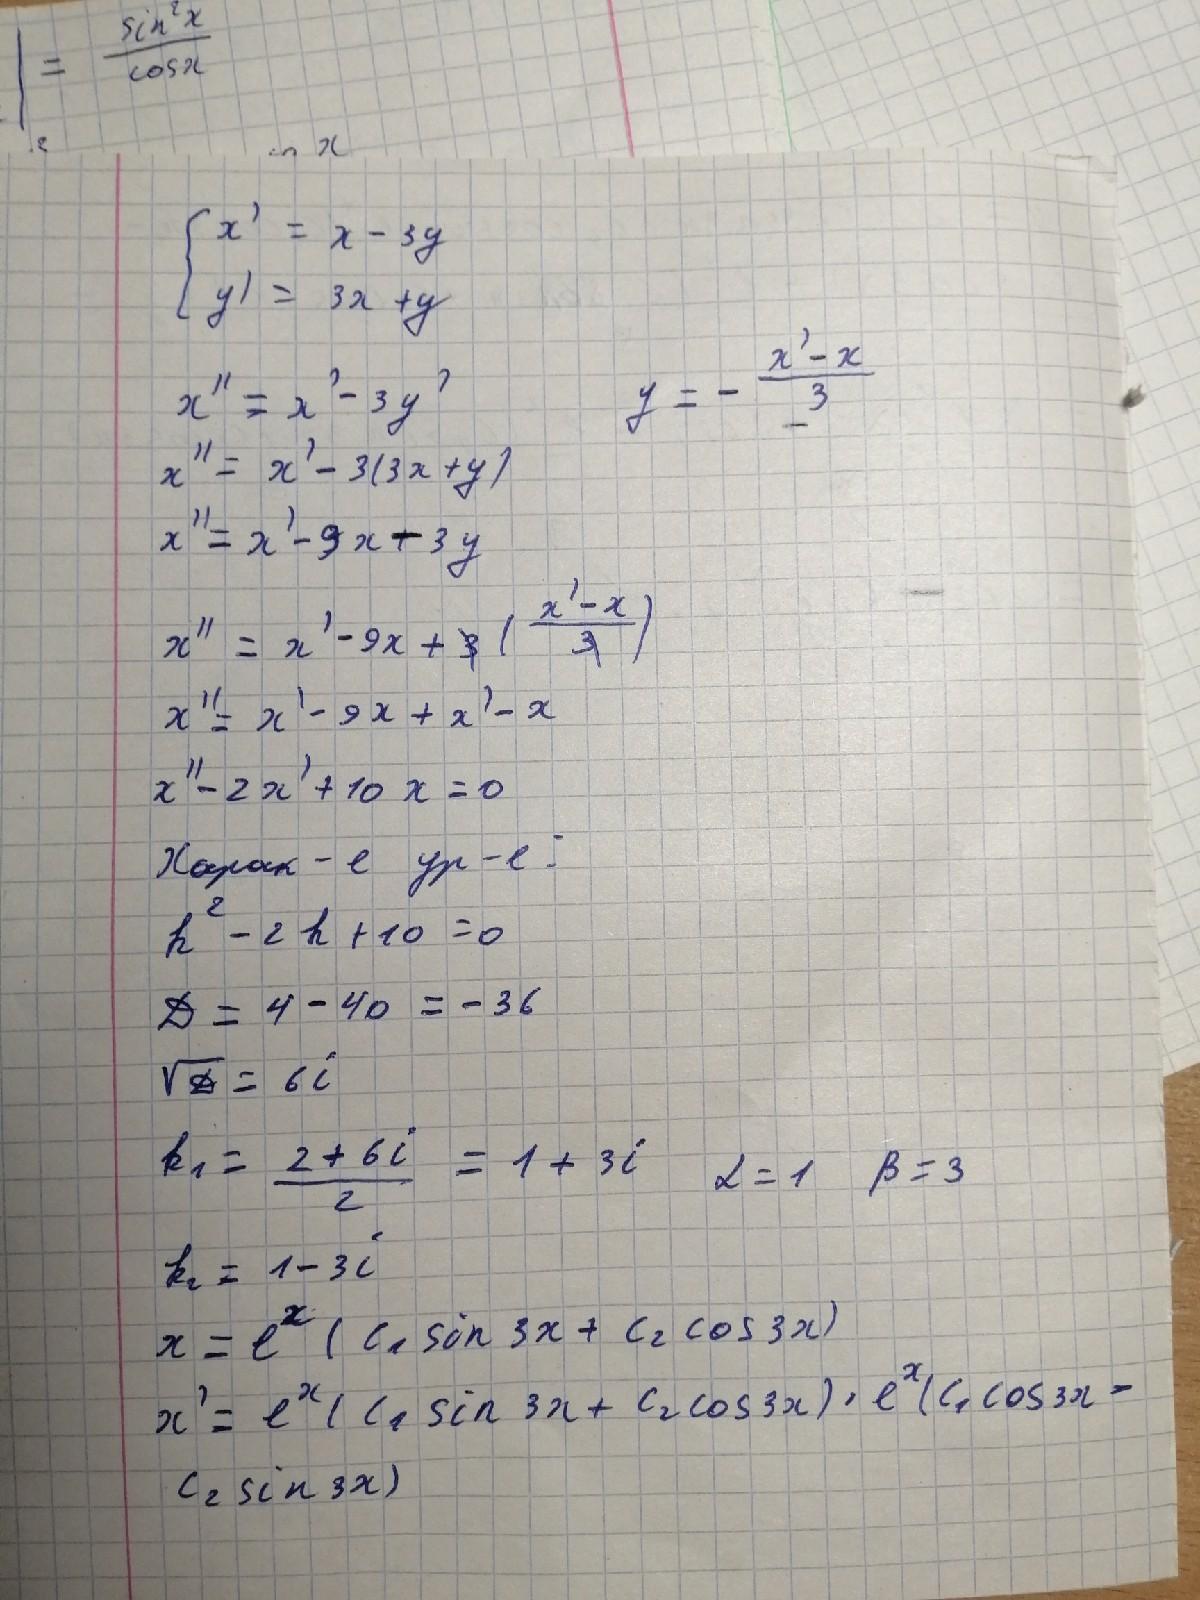 = sin²x / cosx
x
{ x' = x - 3y
y' = 3x + y
x'' = x' - 3y'
y = - (x' - x) / 3
x'' = x' - 3(3x + y)
x'' = x' - 9x - 3y
x'' = x' - 9x + 3 ( (x' - x) / 3 )
x'' = x' - 9x + x' - x
x'' - 2x' + 10x = 0
Харак-е ур-е:
k² - 2k + 10 = 0
D = 4 - 40 = -36
√D = 6i
k₁ = (2 + 6i) / 2 = 1 + 3i α = 1 β = 3
k₂ = 1 - 3i
x = eˣ ( C₁ sin 3x + C₂ cos 3x)
x' = eˣ ( C₁ sin 3x + C₂ cos 3x) · eˣ (C₁ cos 3x -
C₂ sin 3x)